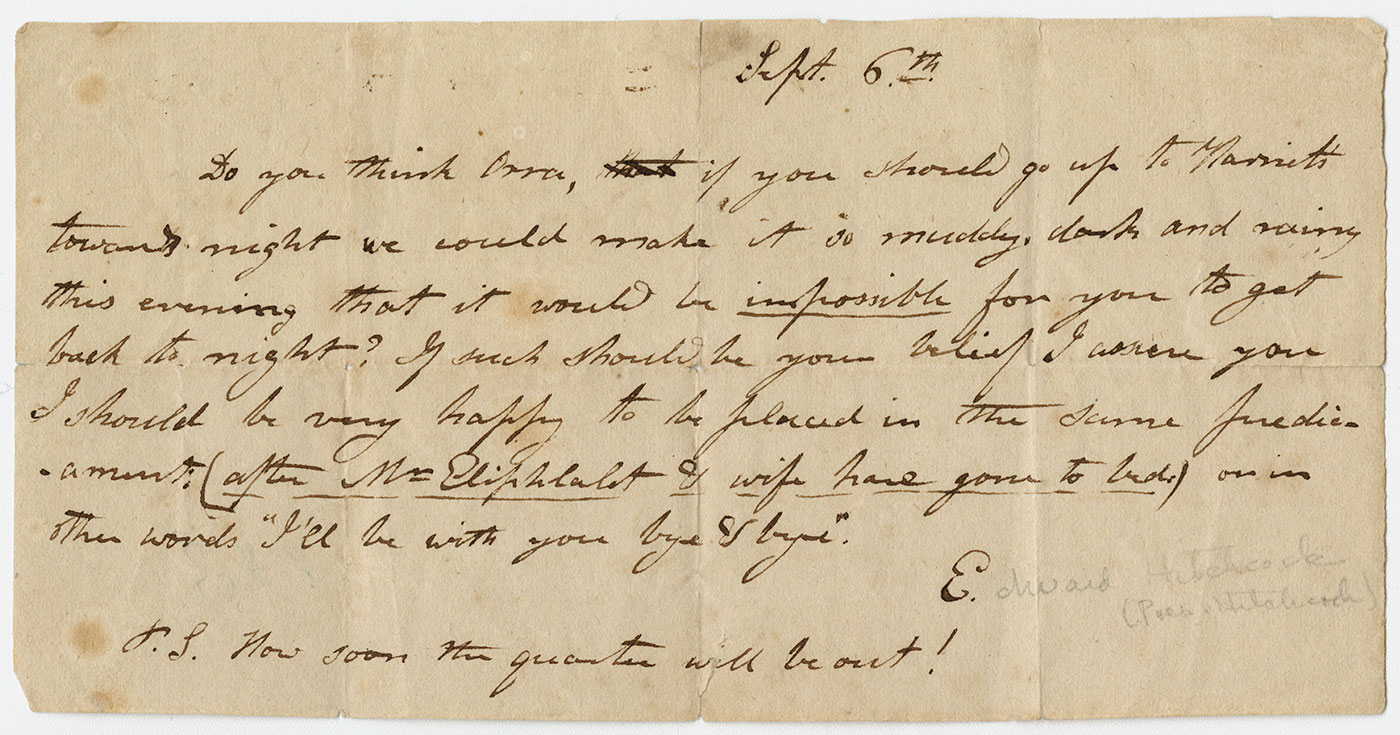 Sept. 6th.
Do you think Orra, that if you should go up to Harriet's
towards night we could make it so muddy, dark and rainy
this evening that it would be impossible for you to get
back to night? If such should be your belief I assure you
I should be very happy to be placed in the same predic-
-ament: (after Mr Eliphlalet & wife have gone to bed.) or in
other words "I'll be with you bye & bye".
E. dward Hitchcock
(Pres. Hitchcock)
P.S. How soon the quarter will be out!